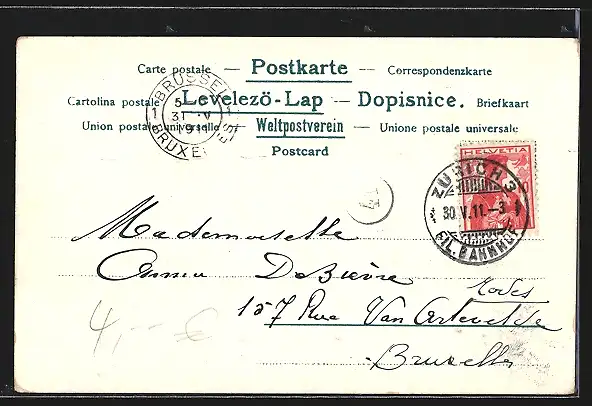 Carte postale — Postkarte — Correspondenzkarte
Cartolina postale Levelező-Lap — Dopisnice. Briefkaart
Union postale universelle Weltpostverein — Unione postale universale
Postcard
BRUSSEL
5
31 V
1911
BRUXE
HELVETIA
ZÜRICH 3
30.V.11.-3
FIL. BAHNHOF
Mademoiselle
Anna DeBièvre
Modes
157 Rue Van Artevelde
Bruxelles
4,-- €